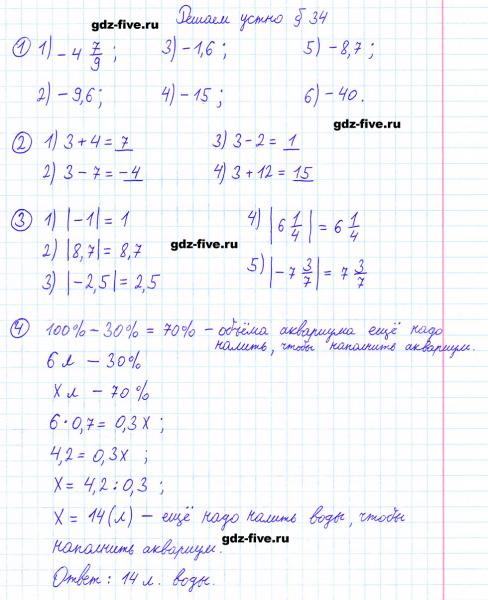 Решаем устно § 34
gdz-five.ru
① 1) -4 7/9 ; 3) -1,6 ; 5) -8,7 ;
gdz-five.ru
2) -9,6 ; 4) -15 ; 6) -40.
gdz-five.ru
② 1) 3 + 4 = 7 3) 3 - 2 = 1
2) 3 - 7 = -4 4) 3 + 12 = 15
③ 1) |-1| = 1 4) |6 1/4| = 6 1/4
2) |8,7| = 8,7 gdz-five.ru
3) |-2,5| = 2,5 5) |-7 3/7| = 7 3/7
④ 100% - 30% = 70% - объёма аквариума ещё надо
налить, чтобы наполнить аквариум.
6 л - 30%
х л - 70%
6 · 0,7 = 0,3х ;
4,2 = 0,3х ;
х = 4,2 : 0,3 ;
х = 14 (л) - ещё надо налить воды, чтобы
наполнить аквариум.
gdz-five.ru
Ответ: 14 л. воды.